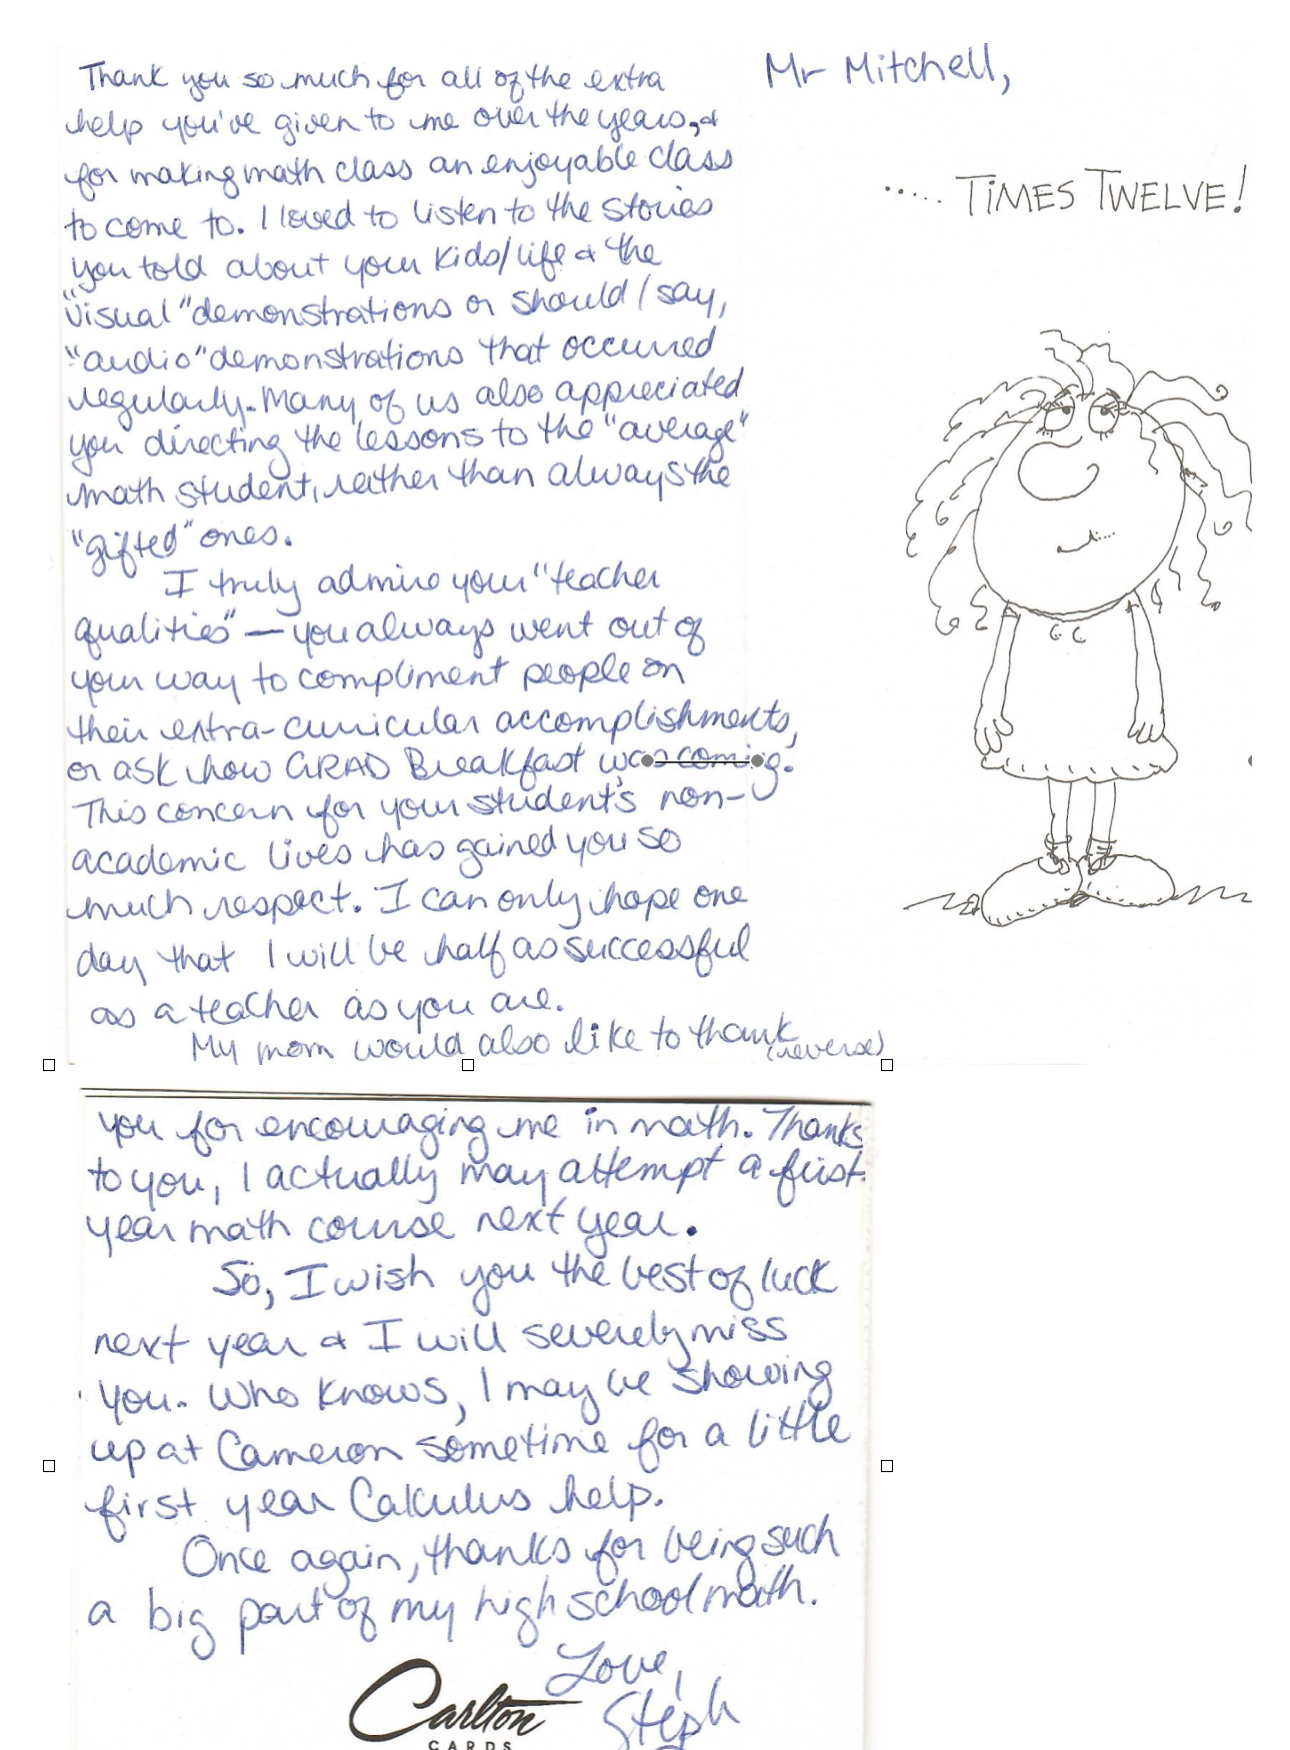 Mr Mitchell,
..... TIMES TWELVE!
Thank you so much for all of the extra
help you've given to me over the years, &
for making math class an enjoyable class
to come to. I loved to listen to the stories
you told about your kids/life & the
"visual" demonstrations or should I say,
"audio" demonstrations that occurred
regularly. Many of us also appreciated
you directing the lessons to the "average"
math student, rather than always the
"gifted" ones.
I truly admire your "teacher
qualities" — you always went out of
your way to compliment people on
their extra-curricular accomplishments,
or ask how GRAD Breakfast was coming.
This concern for your student's non-
academic lives has gained you so
much respect. I can only hope one
day that I will be half as successful
as a teacher as you are.
My mom would also like to thank
(reverse)
you for encouraging me in math. Thanks
to you, I actually may attempt a first
year math course next year.
So, I wish you the best of luck
next year & I will severely miss
you. Who knows, I may be showing
up at Cameron sometime for a little
first year Calculus help.
Once again, thanks for being such
a big part of my high school math.
Love,
Steph
Carlton
CARDS